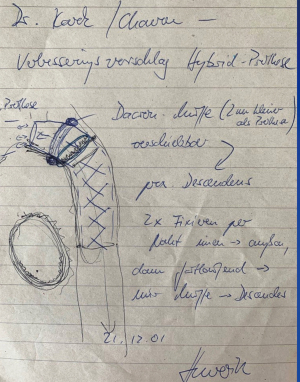 Dr. Karck / Chavan —
Verbesserungsvorschlag Hybrid-Prothese
Prothese
Dacron-Muffe (2 mm kleiner
als Prothese)
verschiebbar
prox Descendens
2x Fixieren per
Naht innen → außen,
dann fortlaufend →
mir Muffe → Descendens
21.12.01